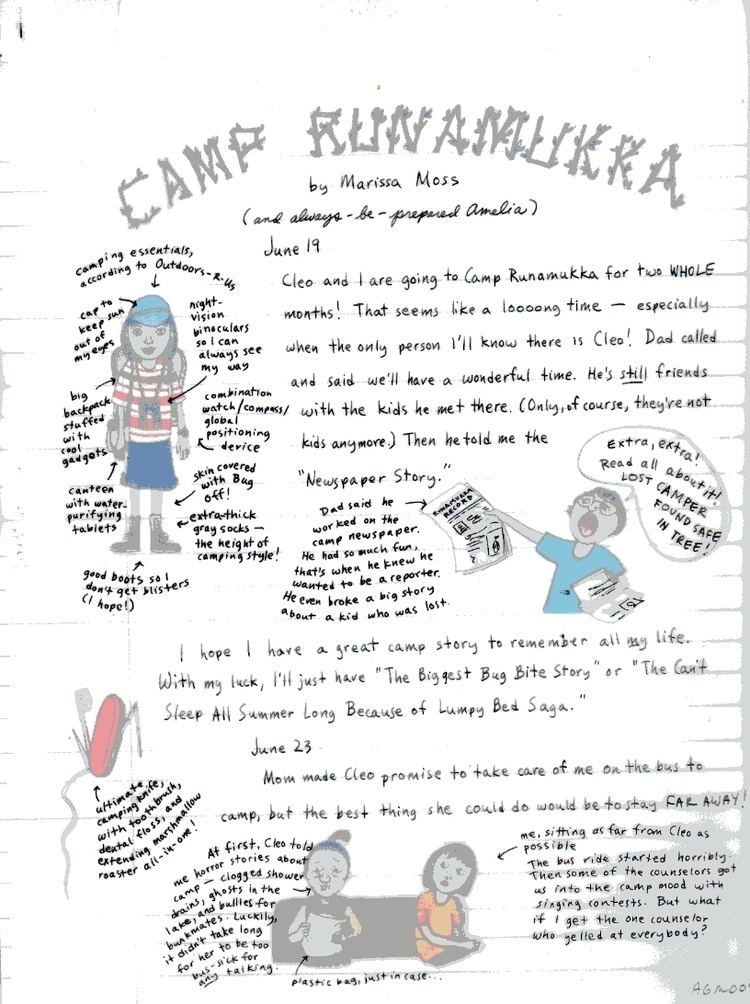 CAMP RUNAMUKKA
by Marissa Moss
(and always-be-prepared Amelia)
June 19
camping essentials,
according to Outdoors-R-Us
cap to
keep sun
out of
my eyes
night-
vision
binoculars
so I can
always see
my way
big
backpack
stuffed
with
cool
gadgets
combination
watch/compass/
global
positioning
device
canteen
with water-
purifying
tablets
skin covered
with Bug
off!
extra-thick
gray socks—
the height of
camping style!
good boots so I
don't get blisters
(I hope!)
Cleo and I are going to Camp Runamukka for two WHOLE
months! That seems like a loooong time — especially
when the only person I'll know there is Cleo! Dad called
and said we'll have a wonderful time. He's still friends
with the kids he met there. (Only, of course, they're not
kids anymore.) Then he told me the
"Newspaper Story."
Dad said he
worked on the
camp newspaper.
He had so much fun,
that's when he knew he
wanted to be a reporter.
He even broke a big story
about a kid who was lost.
RUNAMUKKA
RECORD
Extra, extra!
Read all about it!
LOST CAMPER
FOUND SAFE
IN TREE!
I hope I have a great camp story to remember all my life.
With my luck, I'll just have "The Biggest Bug Bite Story" or "The Can't
Sleep All Summer Long Because of Lumpy Bed Saga."
June 23
Mom made Cleo promise to take care of me on the bus to
camp, but the best thing she could do would be to stay FAR AWAY!
ultimate
camping knife,
with toothbrush,
dental floss, and
extending marshmallow
roaster all-in-one!
At first, Cleo told
me horror stories about
camp — clogged shower
drains, ghosts in the
lake, and bullies for
bunkmates. Luckily,
it didn't take long
for her to be too
bus-sick for
any talking.
plastic bag, just in case...
me, sitting as far from Cleo as
possible
The bus ride started horribly.
Then some of the counselors got
us into the camp mood with
singing contests. But what
if I get the one counselor
who yelled at everybody?